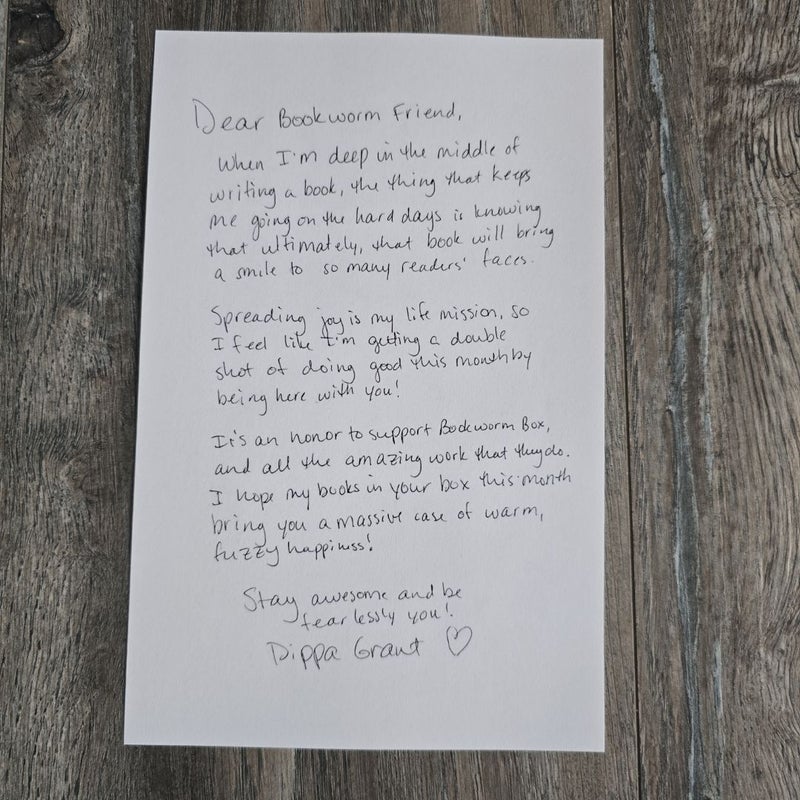 Dear Bookworm Friend,
When I'm deep in the middle of
writing a book, the thing that keeps
me going on the hard days is knowing
that ultimately, that book will bring
a smile to so many readers' faces.
Spreading joy is my life mission, so
I feel like I'm getting a double
shot of doing good this month by
being here with you!
It's an honor to support Bookworm Box,
and all the amazing work that they do.
I hope my books in your box this month
bring you a massive case of warm,
fuzzy happiness!
Stay awesome and be
fearlessly you!
Pippa Grant ♡